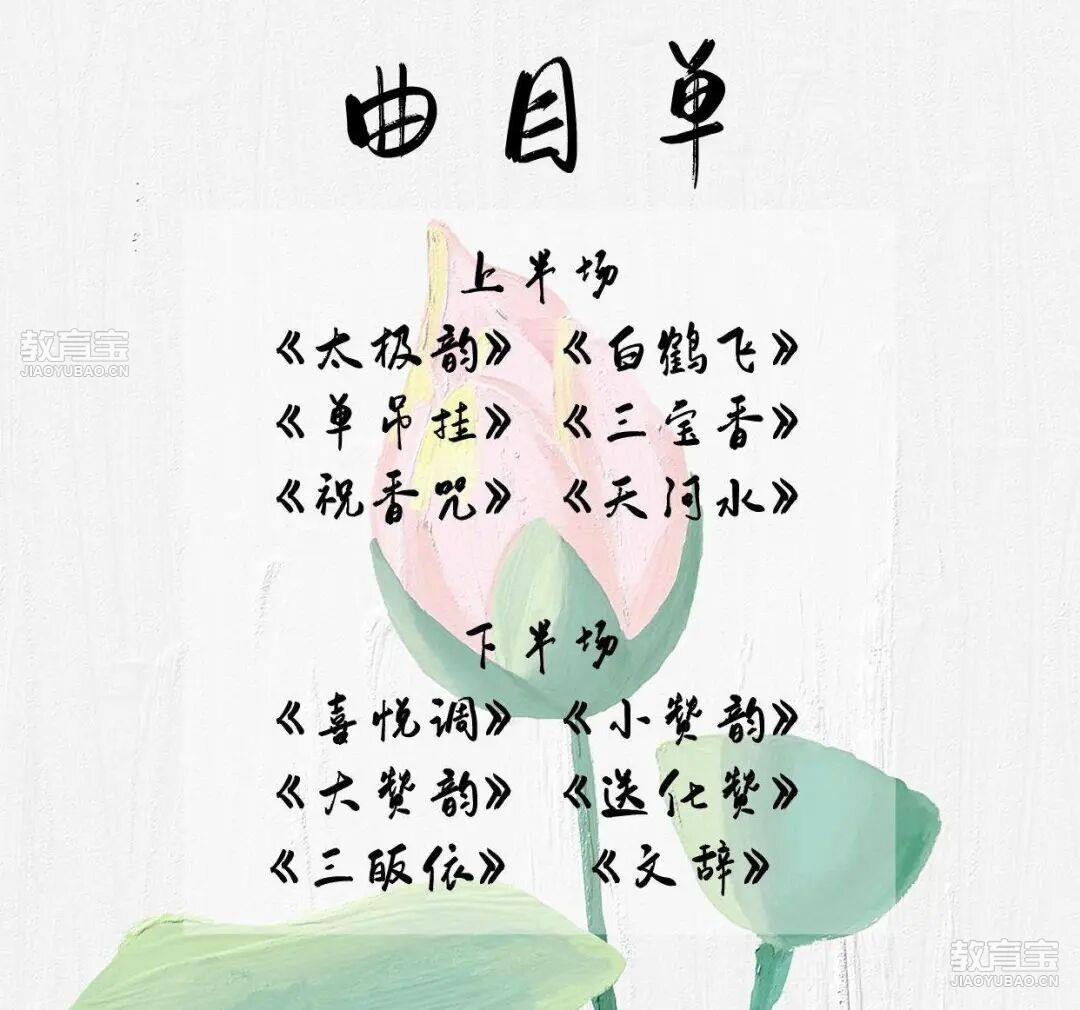 曲目单
上半场
《太极韵》 《白鹤飞》
《单吊挂》 《三宝香》
《祝香咒》 《天河水》
下半场
《喜悦调》 《小赞韵》
《大赞韵》 《送化赞》
《三皈依》 《文辞》
教育宝
JIAOYUBAO.CN
教育宝
JIAOYUBAO.CN